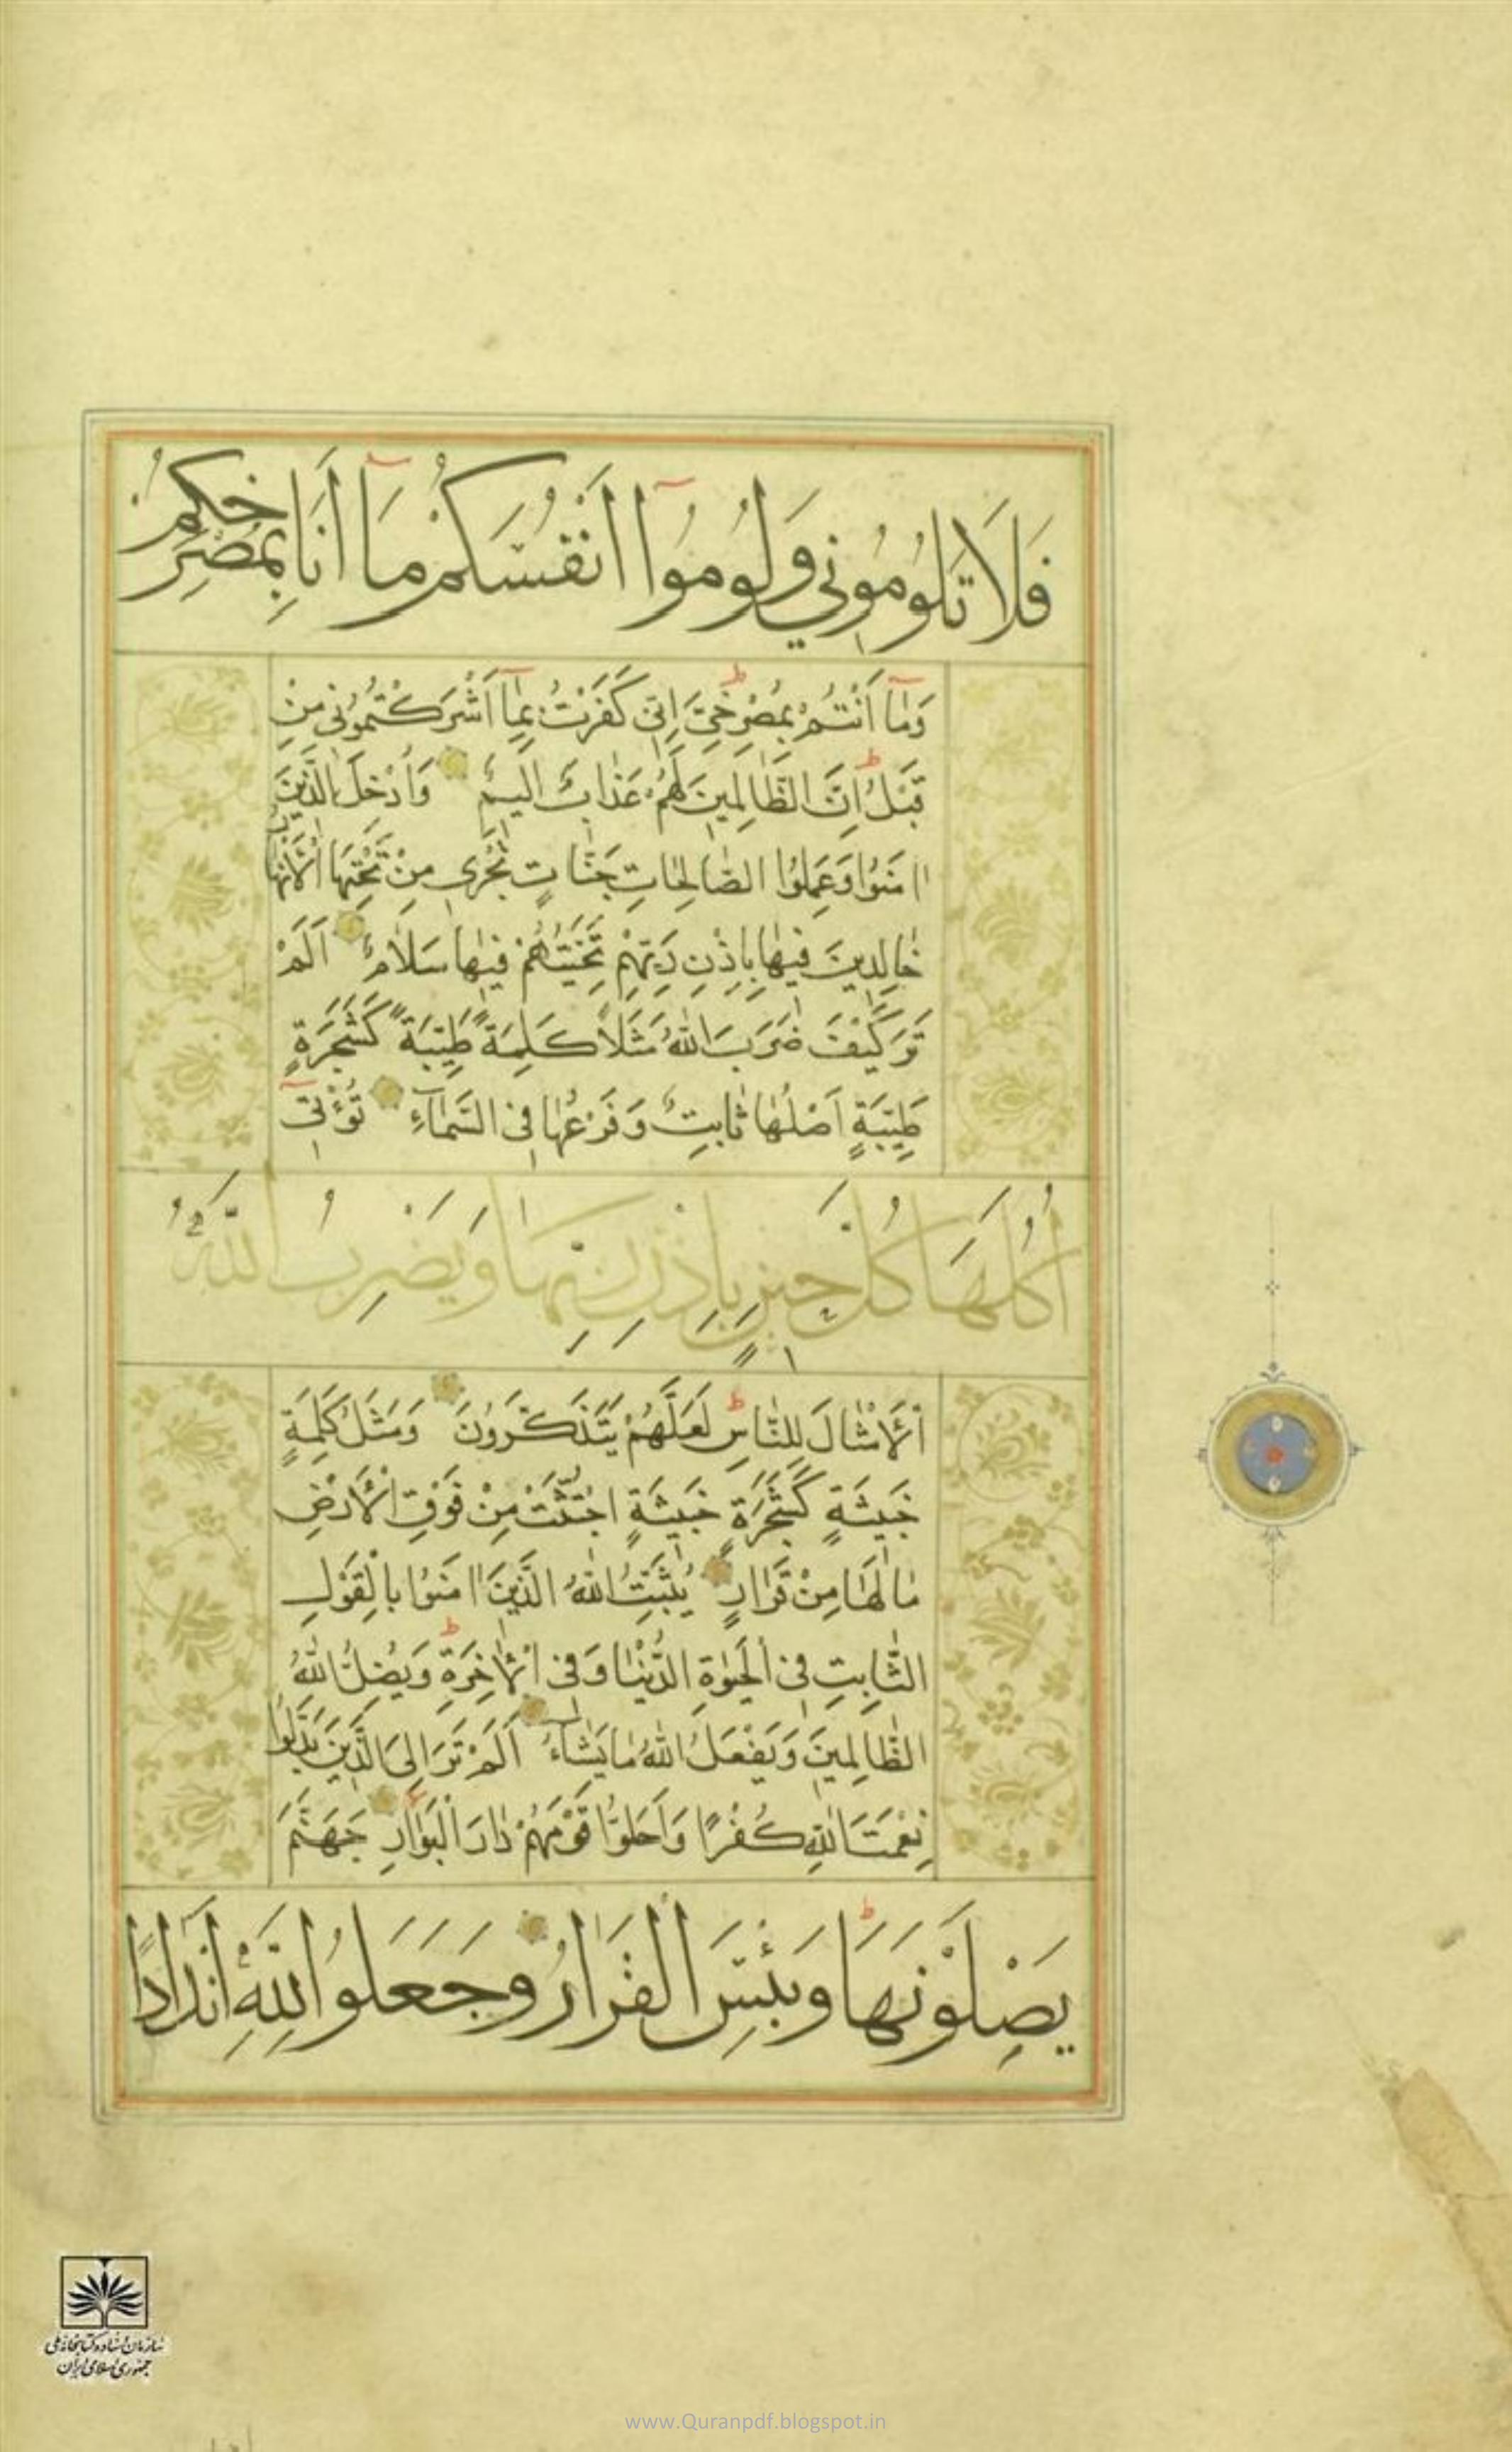 فَلَا تَلُومُونِي وَلُومُوٓا اَنْفُسَكُمْ مَآ اَنَا بِمُصْرِخِكُمْ
وَمٰٓا اَنْتُمْ بِمُصْرِخِىَّ اِنّى كَفَرْتُ بِمٰٓا اَشْرَكْتُمُونى مِنْ
قَبْلُ اِنَّ الظّٰالِمينَ لَهُمْ عَذٰابٌ اَليمٌ وَاُدْخِلَ الَّذينَ
اٰمَنُوا وَعَمِلُوا الصّٰالِحٰاتِ جَنّٰاتٍ تَجْرى مِنْ تَحْتِهَا الْاَنْهٰارُ
خٰالِدينَ فيهٰا بِاِذْنِ رَبِّهِمْ تَحِيَّتُهُمْ فيهٰا سَلٰامٌ اَلَمْ
تَرَ كَيْفَ ضَرَبَ اللّٰهُ مَثَلاً كَلِمَةً طَيِّبَةً كَشَجَرَةٍ
طَيِّبَةٍ اَصْلُهٰا ثٰابِتٌ وَفَرْعُهٰا فِى السَّمٰآءِ تُؤْتى
اُكُلَهَا كُلَّ حِينٍ بِاِذْنِ رَبِّهَا وَيَضْرِبُ اللّٰهُ
الْاَمْثٰالَ لِلنّٰاسِ لَعَلَّهُمْ يَتَذَكَّرُونَ وَمَثَلُ كَلِمَةٍ
خَبيثَةٍ كَشَجَرَةٍ خَبيثَةٍ اجْتُثَّتْ مِنْ فَوْقِ الْاَرْضِ
مٰا لَهٰا مِنْ قَرٰارٍ يُثَبِّتُ اللّٰهُ الَّذينَ اٰمَنُوا بِالْقَوْلِ
الثّٰابِتِ فِى الْحَيٰوةِ الدُّنْيٰا وَفِى الْاٰخِرَةِ وَيُضِلُّ اللّٰهُ
الظّٰالِمينَ وَيَفْعَلُ اللّٰهُ مٰا يَشٰآءُ اَلَمْ تَرَ اِلَى الَّذينَ بَدَّلُوا
نِعْمَتَ اللّٰهِ كُفْرًا وَاَحَلُّوا قَوْمَهُمْ دٰارَ الْبَوٰارِ جَهَنَّمَ
يَصْلَوْنَهَا وَبِئْسَ الْقَرَارُ وَجَعَلُوا لِلّٰهِ اَنْدَادًا
سازمان اسناد و کتابخانه ملی
جمهوری اسلامی ایران
www.Quranpdf.blogspot.in